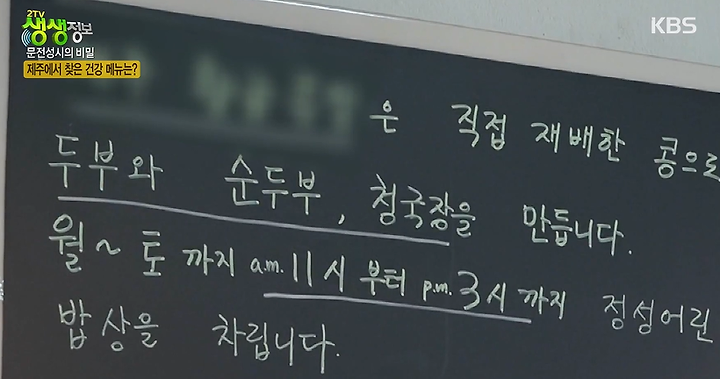 2TV
생생정보
문전성시의 비밀
제주에서 찾은 건강 메뉴는?
KBS
은 직접 재배한 콩으로
두부와 순두부, 청국장을 만듭니다.
월~토까지 a.m. 11시부터 p.m. 3시까지 정성어린
밥상을 차립니다.